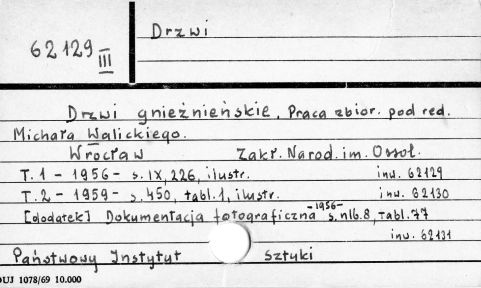 62129
III
Drzwi
Drzwi gnieźnieńskie, Praca zbior. pod red.
Michała Walickiego.
Wrocław Zakł. Narod. im. Ossol.
T.1 - 1956 - s. IX, 226, ilustr. inw. 62129
T.2 - 1959 - s. 450, tabl. 1, ilustr. inw. 62130
[dodatek] Dokumentacja fotograficzna -1956- s. nlb. 8, tabl. 77
inw. 62131
Państwowy Instytut Sztuki
DUJ 1078/69 10.000